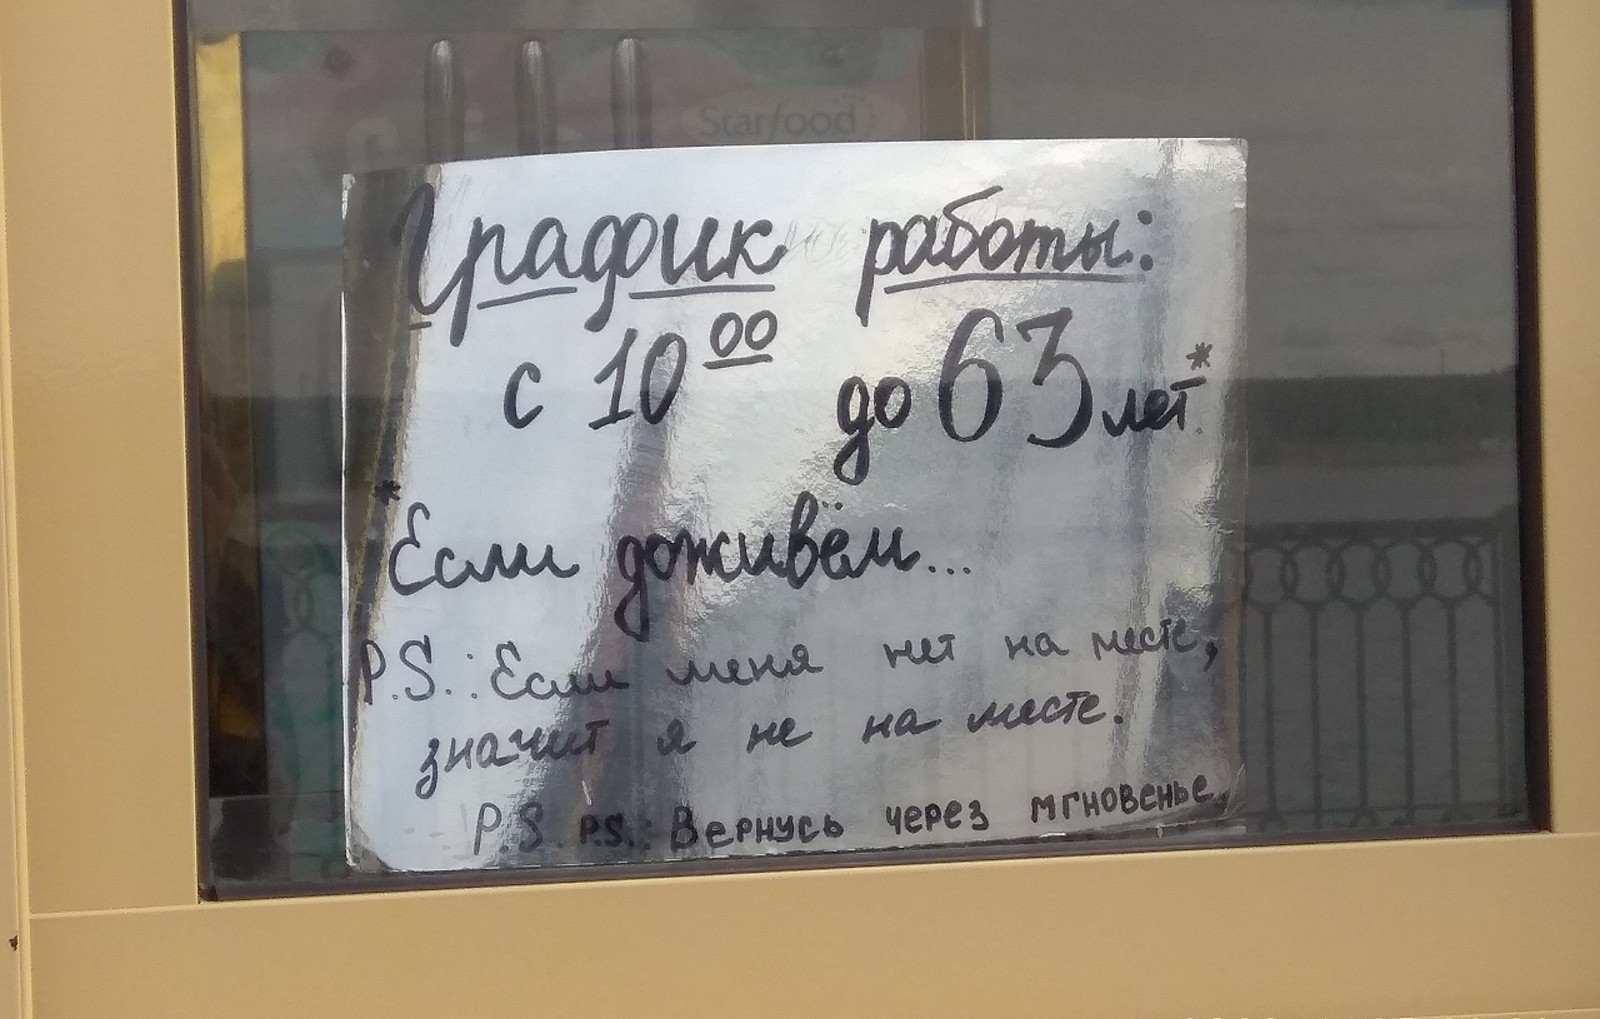 Starfood
График работы:
с 10 00 до 63 лет*
*Если доживём...
P.S.: Если меня нет на месте,
значит я не на месте.
P.S. P.S.: Вернусь через мгновенье,